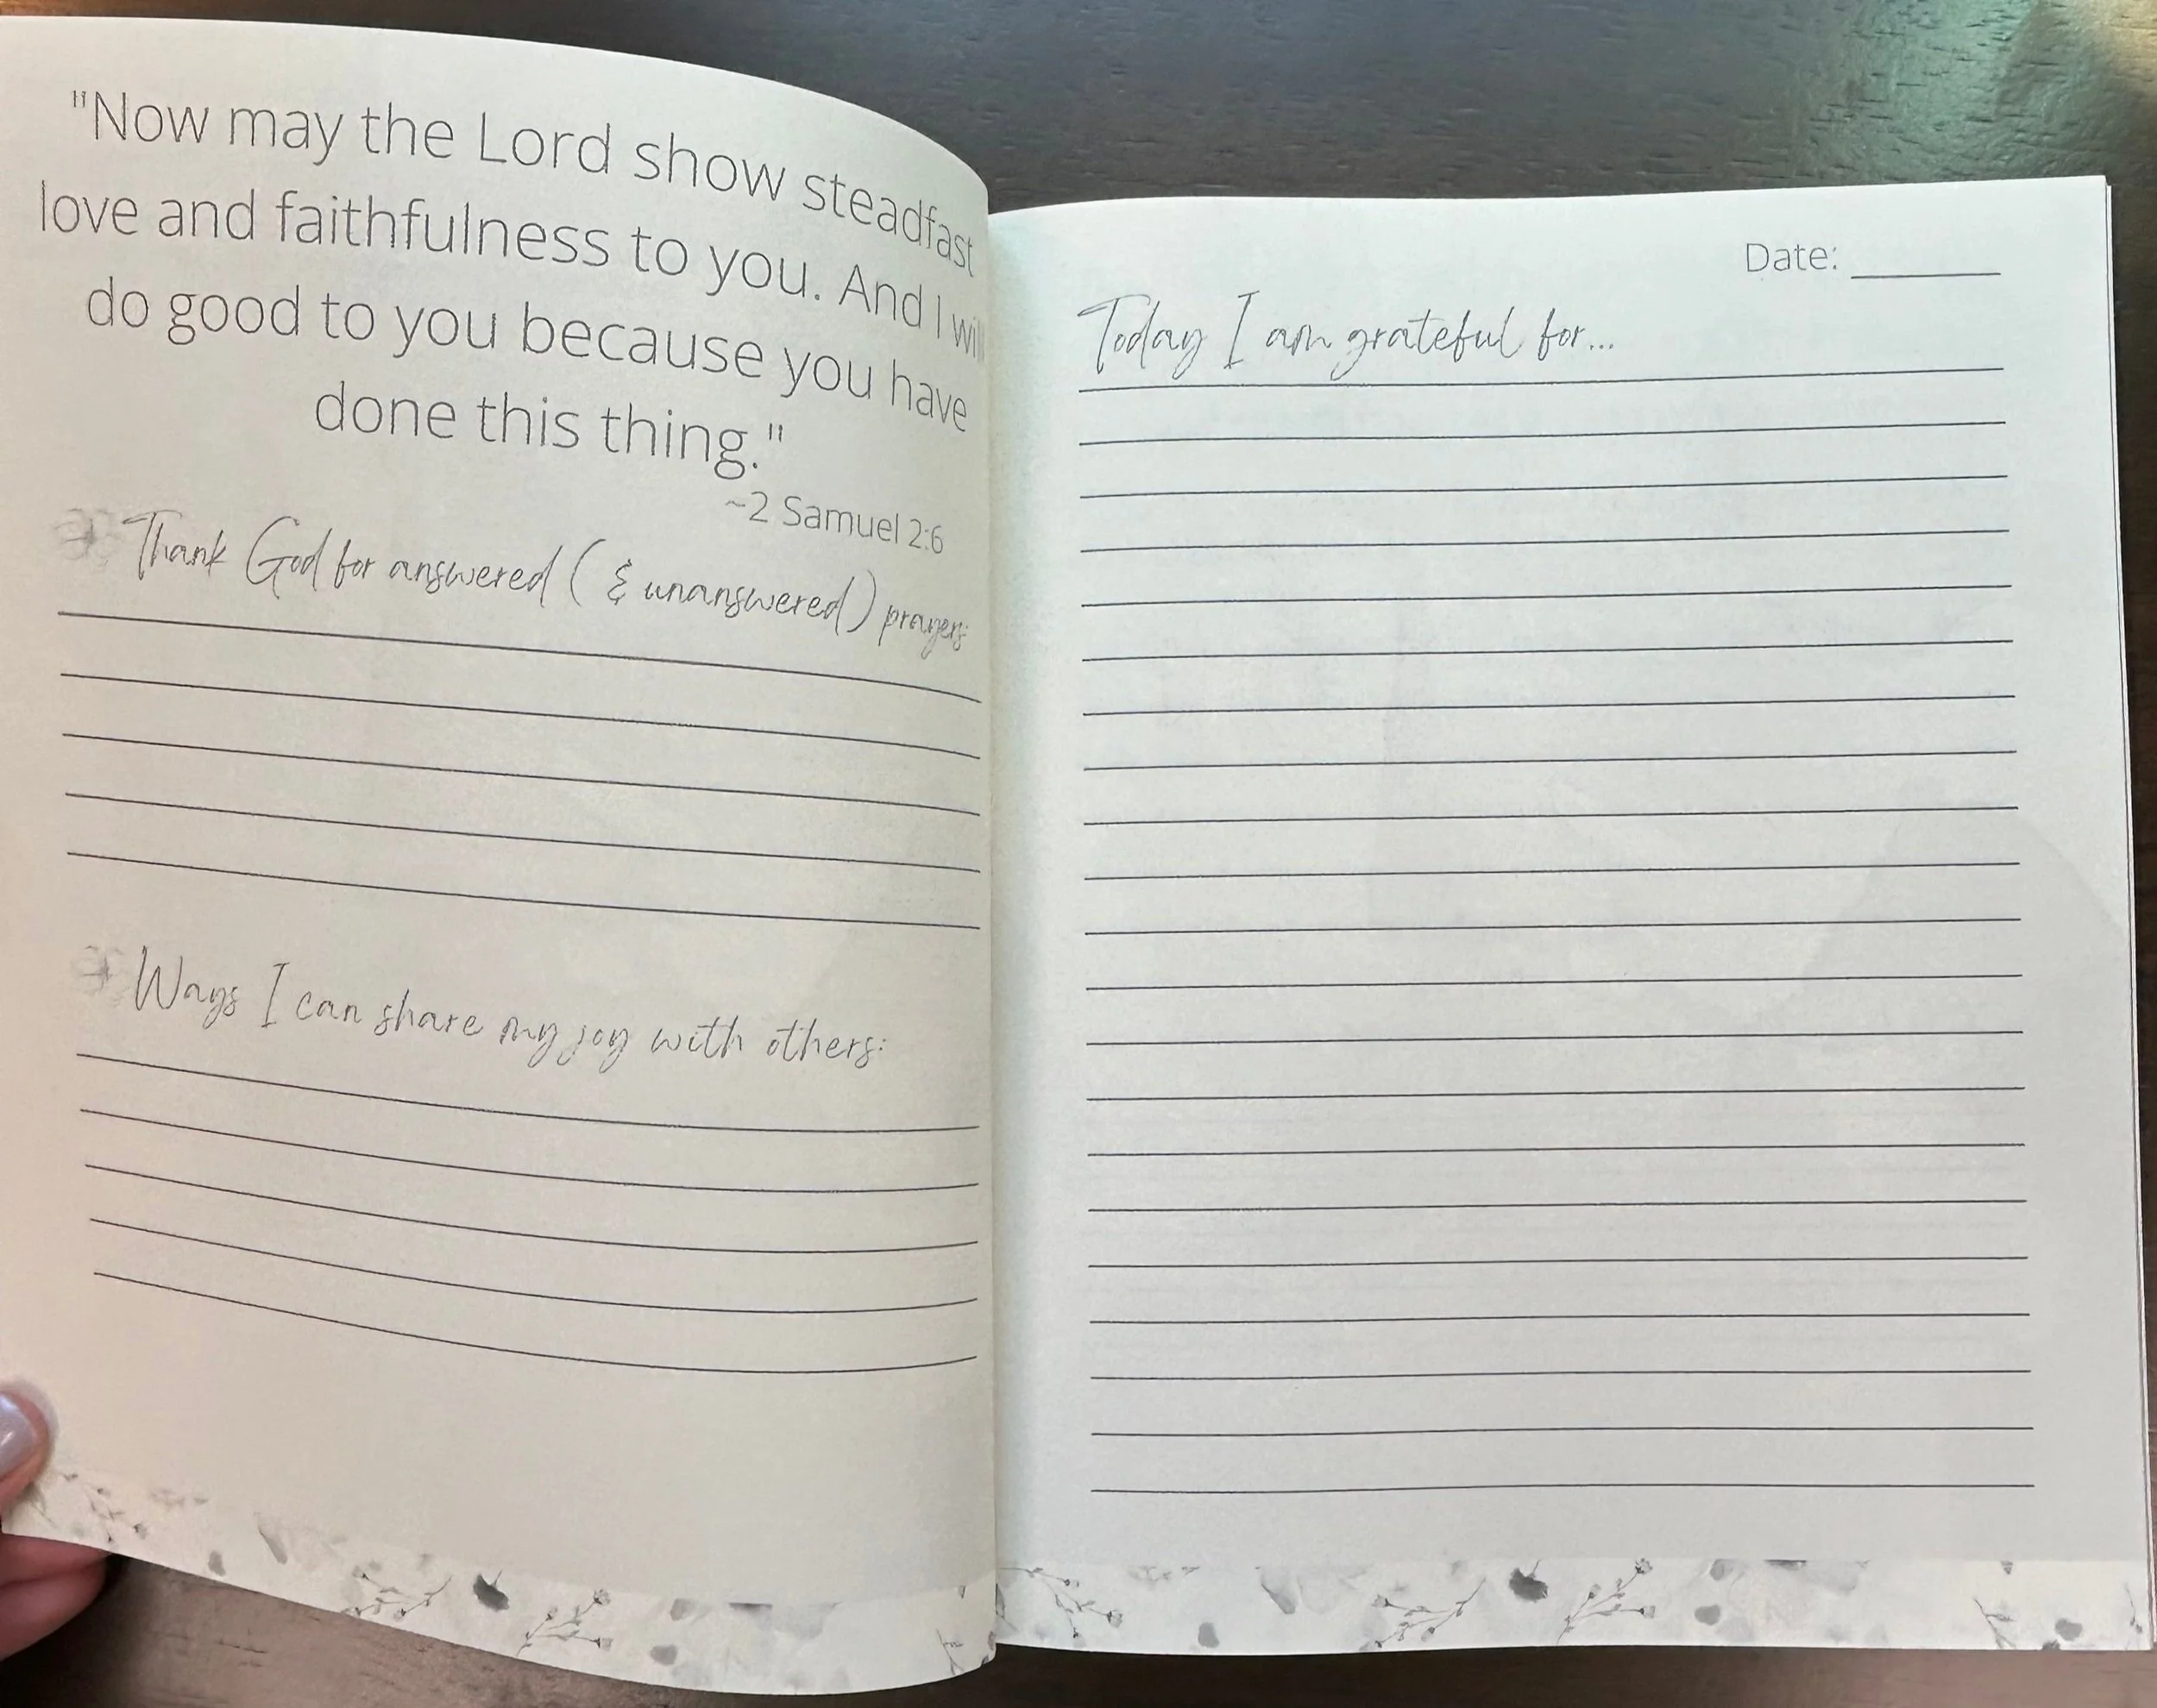 "Now may the Lord show steadfast
love and faithfulness to you. And I will
do good to you because you have
done this thing."
~2 Samuel 2:6
Thank God for answered (& unanswered) prayers:
Ways I can share my joy with others:
Date:
Today I am grateful for...